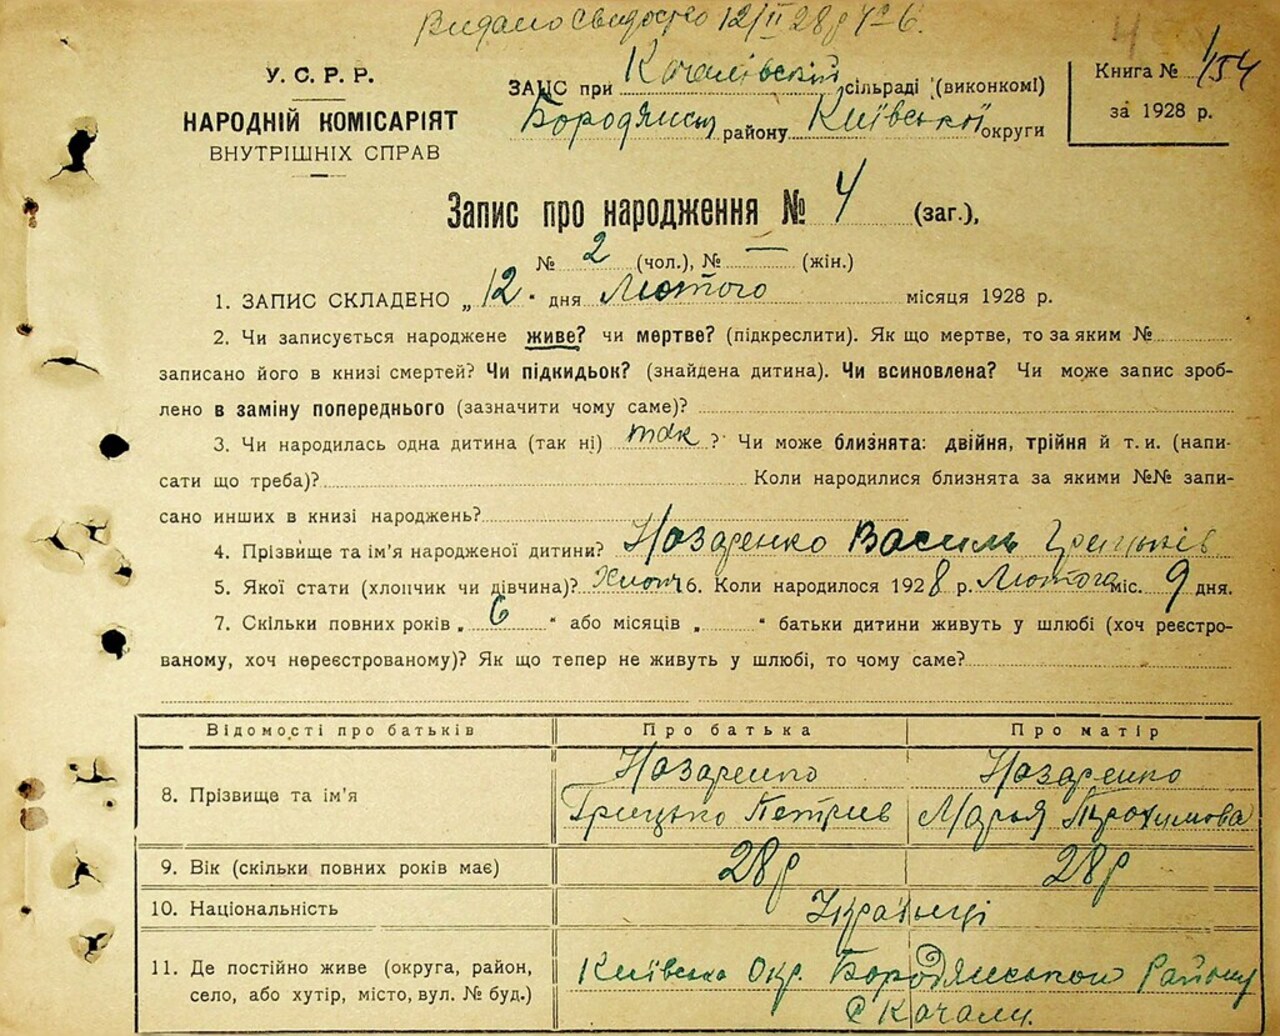 Видано Свидоцтво 12/II 28р № 6.
У. С. Р. Р.
НАРОДНІЙ КОМІСАРІЯТ
ВНУТРІШНІХ СПРАВ
ЗАЦС при Качалівській сільраді (виконкомі)
Бородянськ району Київської округи
Книга № 1/154
за 1928 р.
Запис про народження № 4 (заг.),
№ 2 (чол.), № — (жін.)
1. ЗАПИС СКЛАДЕНО „ 12 " дня Лютого місяця 1928 р.
2. Чи записується народжене живе? чи мертве? (підкреслити). Як що мертве, то за яким №
записано його в книзі смертей? Чи підкидьок? (знайдена дитина). Чи всиновлена? Чи може запис зроб-
лено в заміну попереднього (зазначити чому саме)?
3. Чи народилась одна дитина (так ні) так ? Чи може близнята: двійня, трійня й т. и. (напи-
сати що треба)? Коли народилися близнята за якими №№ запи-
сано инших в книзі народжень?
4. Прізвище та ім'я народженої дитини? Назаренко Василь Грицьків
5. Якої стати (хлопчик чи дівчина)? Хлопч 6. Коли народилося 1928 р. Лютого міс. 9 дня.
7. Скільки повних років „ 6 " або місяців „ " батьки дитини живуть у шлюбі (хоч реєстро-
ваному, хоч нереєстрованому)? Як що тепер не живуть у шлюбі, то чому саме?
Відомості про батьків Про батька Про матір
8. Прізвище та ім'я
Назаренко
Грицько Петрив
Назаренко
Марья Трохимова
9. Вік (скільки повних років має) 28р 28р
10. Національність Українці
11. Де постійно живе (округа, район,
село, або хутір, місто, вул. № буд.)
Київська Окр. Бородянської Району
с Качали.